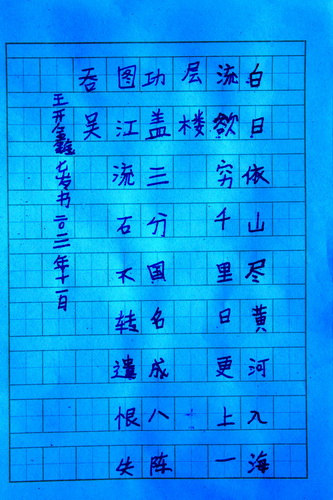 白日依山尽黄河入海
流欲穷千里日更上一
层楼
功盖三分国名成八陈
图江流石不转遗恨失
吞吴
王开鑫七岁书二〇二二年十一月